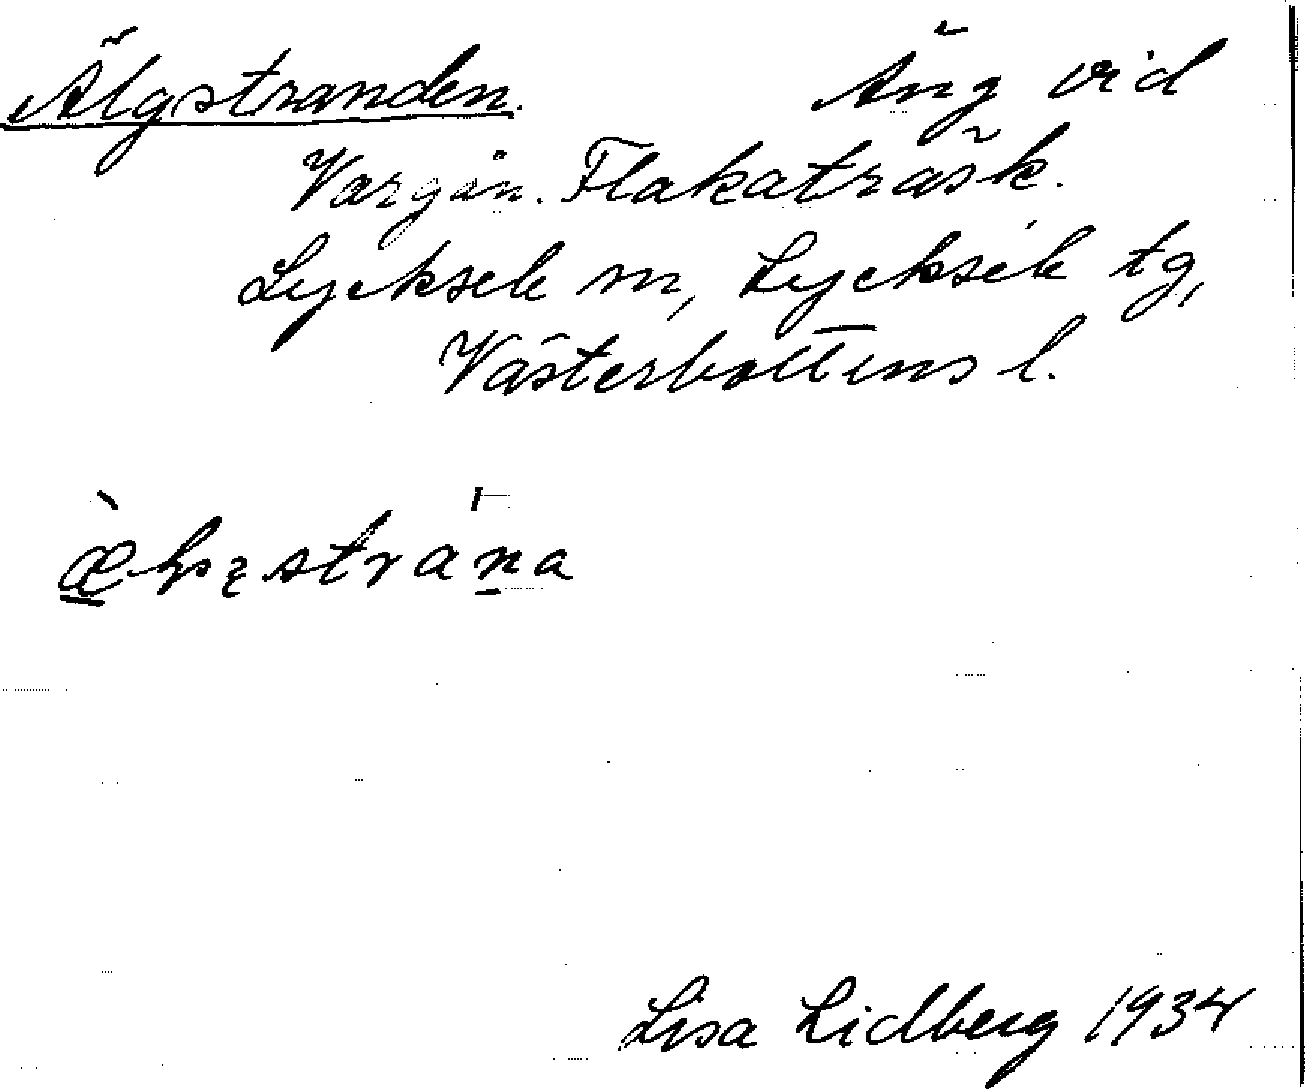 Älgstranden. Äng vid
Vargån. Flakaträsk.
Lycksele m, Lycksele tg,
Västerbottens l.
Lisa Lidberg 1934